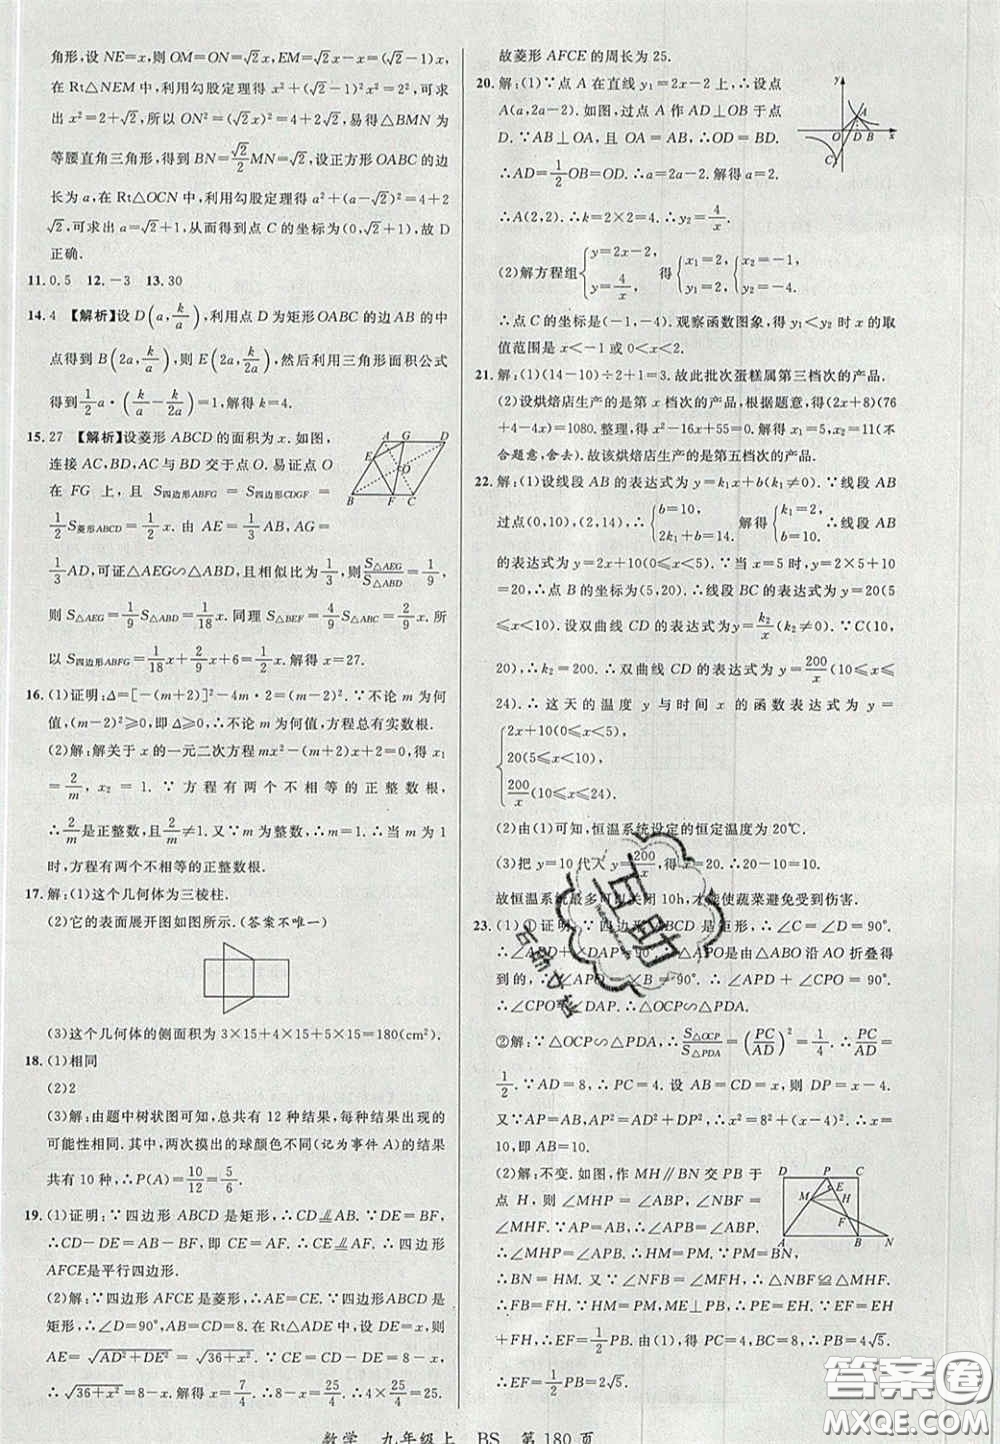 角形,设 NE=x,则 OM=ON=√2x,EM=√2x-x=(√2-1)x,
在 Rt△NEM 中,利用勾股定理得 x²+(√2-1)²x²=2²,可求
出 x²=2+√2,所以 ON²=(√2x)²=4+2√2,易得△BMN 为
等腰直角三角形,所以得到 BN=√2/2MN=√2,设正方形 OABC 的边
长为 a,在 Rt△OCN 中,利用勾股定理得出 a²+(a-√2)²=4+2
√2,可求出 a=√2+1,从而得到点 C 的坐标为(0,√2+1),故 D
正确.
11.0.5 12.-3 13.30
14.4 【解析】设 D(a,k/a),利用点 D 为矩形 OABC 的边 AB 的中
点得到 B(2a,k/a),则 E(2a,k/2a),然后利用三角形面积公式
得到 1/2a·(k/a-k/2a)=1,解得 k=4.
15.27 【解析】设菱形 ABCD 的面积为 x.如图,
连接 AC,BD,AC 与 BD 交于点 O.易证点 O
在 FG 上,且 S四边形ABFG=S四边形CDGF=
1/2S菱形ABCD=1/2x.由 AE=1/3AB,AG=
1/3AD,可证△AEG∽△ABD,且相似比为 1/3,可得 S△AEG/S△ABD=1/9,
则 S△AEG=1/9S△ABD=1/18x.同理 S△BEF=4/9S△ABC=2/9x.所
以 S四边形ABFG=1/18x+2/9x+6=1/2x.解得 x=27.
A G D E O B F C
16.(1)证明:Δ=[-(m+2)]²-4m·2=(m-2)².∵不论 m 为何
值,(m-2)²≥0,即 Δ≥0,∴不论 m 为何值,方程总有实数根.
(2)解:解关于 x 的一元二次方程 mx²-(m+2)x+2=0,得 x₁
=2/m,x₂=1.∵方程有两个不相等的正整数根,
∴2/m是正整数,且2/m≠1.又∵m 为整数,∴m=1.∴当 m=
1时,方程有两个不相等的正整数根.
17.解:(1)这个几何体为三棱柱.
(2)它的表面展开图如图所示.(答案不唯一)
(3)这个几何体的侧面积为 3×15+4×15+5×15=180(cm²).
18.(1)相同
(2)2
(3)解:由题中树状图可知,总共有 12 种结果,每种结果出现的
可能性相同.其中,两次摸出的球颜色不同(记为事件 A)的结果
共有 10 种,∴P(A)=10/12=5/6.
19.(1)证明:∵四边形 ABCD 是矩形,∴CD⫽AB.∵DE=BF,
∴CD-DE=AB-BF,即 CE=AF.∴CE⫽AF.∴四边形
AFCE是平行四边形.
(2)解:∵四边形 AFCE 是菱形,∴AE=CE.∵四边形ABCD是
矩形,∴∠D=90°,AB=CD=8.在 Rt△ADE 中,设 DE=x,则
AE=√AD²+DE²=√36+x².∵CE=CD-DE=8-x,
∴√36+x²=8-x.解得 x=7/4.∴CE=8-7/4=25/4.4×25/4=25.
故菱形 AFCE 的周长为 25.
20.解:(1)∵点 A 在直线 y₁=2x-2 上,∴设点
A(a,2a-2).如图,过点 A 作 AD⊥OB 于点
D.∵AB⊥OA,且 OA=AB,∴OD=BD.
∴AD=1/2OB=OD.∴2a-2=a.解得 a=2.
∴A(2,2).∴k=2×2=4.∴y₂=4/x.
y A O D B x C
(2)解方程组{y=2x-2, y=4/x 得{x₁=2, y₁=2, {x₂=-1, y₂=-4.
∴点 C 的坐标是(-1,-4).观察函数图象,得 y₁<y₂ 时 x 的取
值范围是 x<-1 或 0<x<2.
21.解:(1)(14-10)÷2+1=3.故此批次蛋糕属第三档次的产品.
(2)设烘焙店生产的是第 x 档次的产品,根据题意,得(2x+8)(76
+4-4x)=1080.整理,得 x²-16x+55=0.解得 x₁=5,x₂=11(不
合题意,舍去).故该烘焙店生产的是第五档次的产品.
22.解:(1)设线段 AB 的表达式为 y=k₁x+b(k≠0).∵线段 AB
过点(0,10),(2,14),∴{b=10, 2k₁+b=14. 解得{k₁=2, b=10. ∴线段 AB
的表达式为 y=2x+10(0≤x<5).∵当 x=5 时,y=2×5+10
=20,∴点 B 的坐标为(5,20).∴线段 BC 的表达式为 y=20(5
≤x<10).设双曲线 CD 的表达式为 y=k₂/x(k₂≠0).∵C(10,
20),∴k₂=200.∴双曲线 CD 的表达式为 y=200/x(10≤x≤
24).∴这天的温度 y 与时间 x 的函数表达式为 y=
{2x+10(0≤x<5),
20(5≤x<10),
200/x(10≤x≤24).
(2)由(1)可知,恒温系统设定的恒定温度为 20℃.
(3)把 y=10 代入 y=200/x,得 x=20.∴20-10=10.
故恒温系统最多可以关闭 10h,才能使蔬菜避免受到伤害.
23.(1)①证明:∵四边形 ABCD 是矩形,∴∠C=∠D=90°.
∴∠APD+∠DAP=90°.∵△APO 由△ABO 沿 AO 折叠得
到的,∴∠APO=∠B=90°.∴∠APD+∠CPO=90°.
∴∠CPO=∠DAP.∴△OCP∽△PDA.
②解:∵△OCP∽△PDA,∴S△OCP/S△PDA=(PC/AD)²=1/4.∴PC/AD=
1/2.∵AD=8,∴PC=4.设 AB=x,则 DC=x,DP=x-4.
又∵AP=AB=x,AP²=AD²+DP²,∴x²=8²+(x-4)².∴x=
10,即AB=10.
(2)解:不变.如图,作 MH∥BN 交 PB 于
点 H,则∠MHP=∠ABP,∠MHF=∠NBF.
∵AP=AB,∴∠APB=∠ABP.
∴∠MHP=∠APB.∴MP=MH.∵MP
=BN,∴BN=HM.又∵∠NFB=∠MFH,∴△NFB≌△MFH.
∴FB=FH.∵ME⊥BP,∴EP=EH.∴EP+FB=EH
+FH,∴EF=1/2PB.由(1),得 PC=4,BC=8,∴PB=4√5.
∴EF=1/2PB=2√5.
D P C E M H F A B N
数学 九年级上 BS 第 180 页
互助
答案圈
MXQE.COM